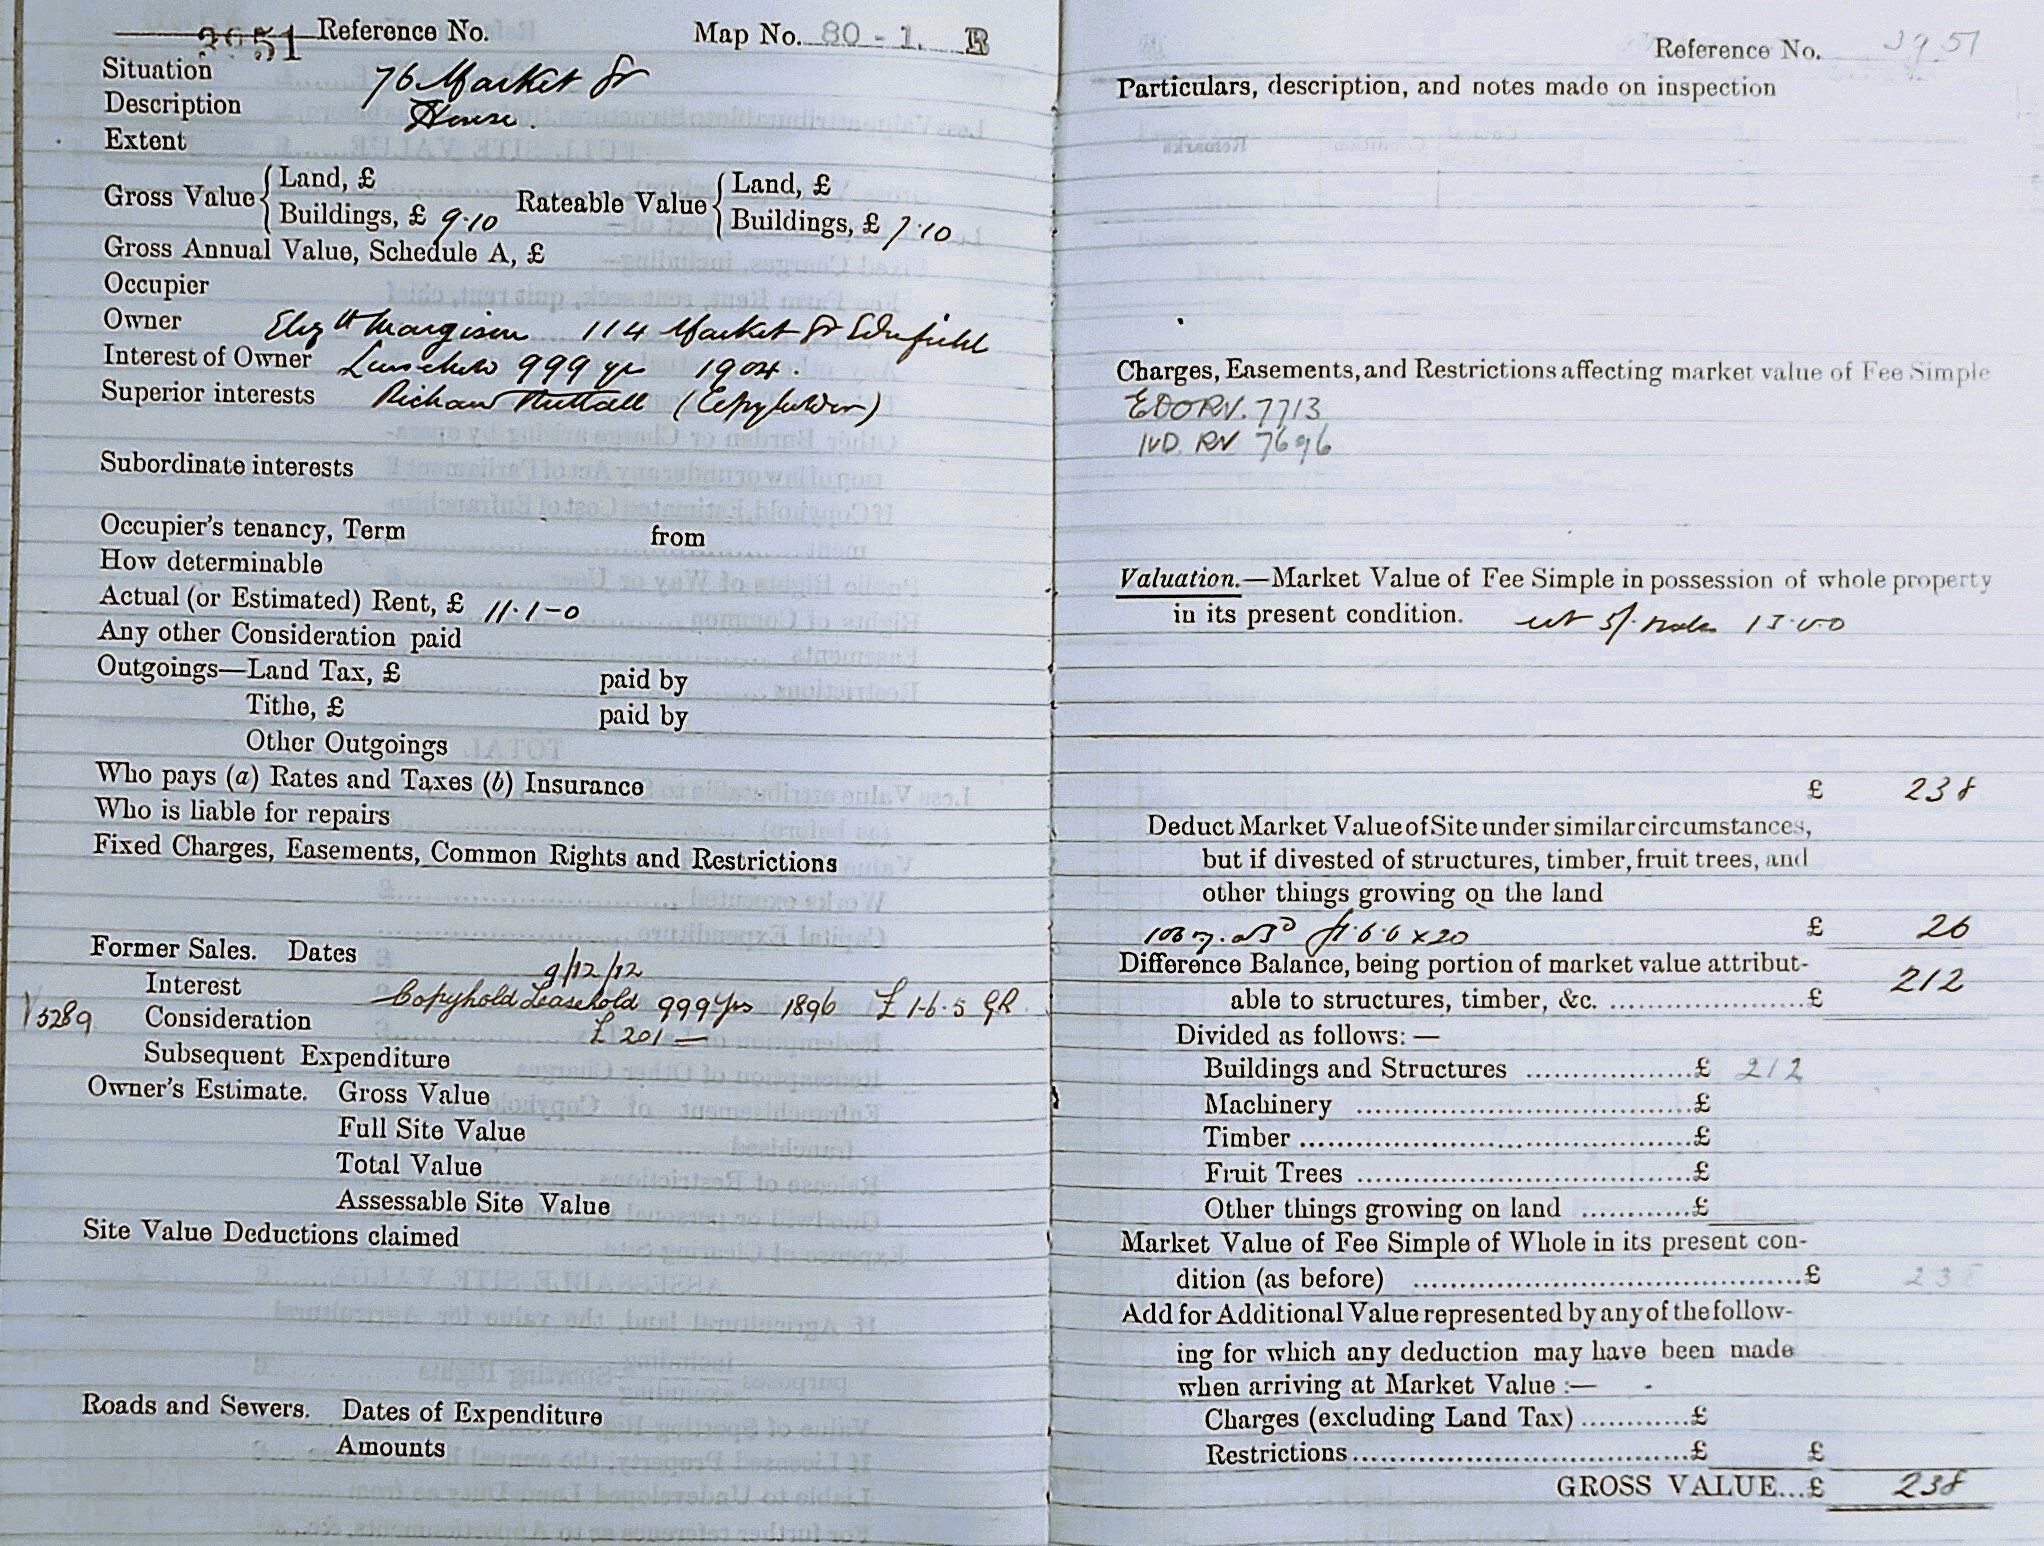 3951 Reference No. Map No. 80 - 1. B
Situation 76 Market St
Description House.
Extent
Gross Value { Land, £ Rateable Value { Land, £
Buildings, £ 9.10 Buildings, £ 7.10
Gross Annual Value, Schedule A, £
Occupier
Owner Eliz th Margison 114 Market St Edenfield
Interest of Owner Leasehold 999 yrs 1904.
Superior interests Richard Nuttall (Copyholder)
Subordinate interests
Occupier's tenancy, Term from
How determinable
Actual (or Estimated) Rent, £ 11-1-0
Any other Consideration paid
Outgoings—Land Tax, £ paid by
Tithe, £ paid by
Other Outgoings
Who pays (a) Rates and Taxes (b) Insurance
Who is liable for repairs
Fixed Charges, Easements, Common Rights and Restrictions
Former Sales. Dates 9/12/12
Interest Copyhold Leasehold 999 yrs 1896 £1-6-5 GR.
5289 Consideration £201—
Subsequent Expenditure
Owner's Estimate. Gross Value
Full Site Value
Total Value
Assessable Site Value
Site Value Deductions claimed
Roads and Sewers. Dates of Expenditure
Amounts
Reference No. 3951
Particulars, description, and notes made on inspection
Charges, Easements, and Restrictions affecting market value of Fee Simple
RV. 7713
RV 7696
Valuation.—Market Value of Fee Simple in possession of whole property
in its present condition.
£ 238
Deduct Market Value of Site under similar circumstances,
but if divested of structures, timber, fruit trees, and
other things growing on the land
x 20 £ 26
Difference Balance, being portion of market value attribut-
able to structures, timber, &c. £ 212
Divided as follows:—
Buildings and Structures £ 212
Machinery £
Timber £
Fruit Trees £
Other things growing on land £
Market Value of Fee Simple of Whole in its present con-
dition (as before) £ 238
Add for Additional Value represented by any of the follow-
ing for which any deduction may have been made
when arriving at Market Value :—
Charges (excluding Land Tax) £
Restrictions £ £
GROSS VALUE...£ 238